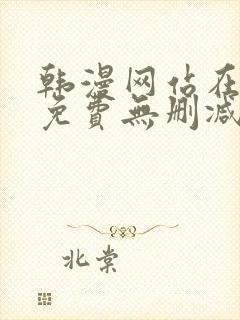 韩漫网站在
免費無删减
北棠